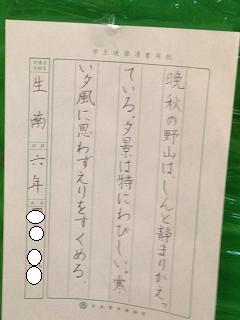 学生硬筆清書用紙
晩秋の野山は、しんと静まりかえっ
ている。夕景は特にわびしい。寒
い夕風に思わずえりをすくめる。
生南
六年